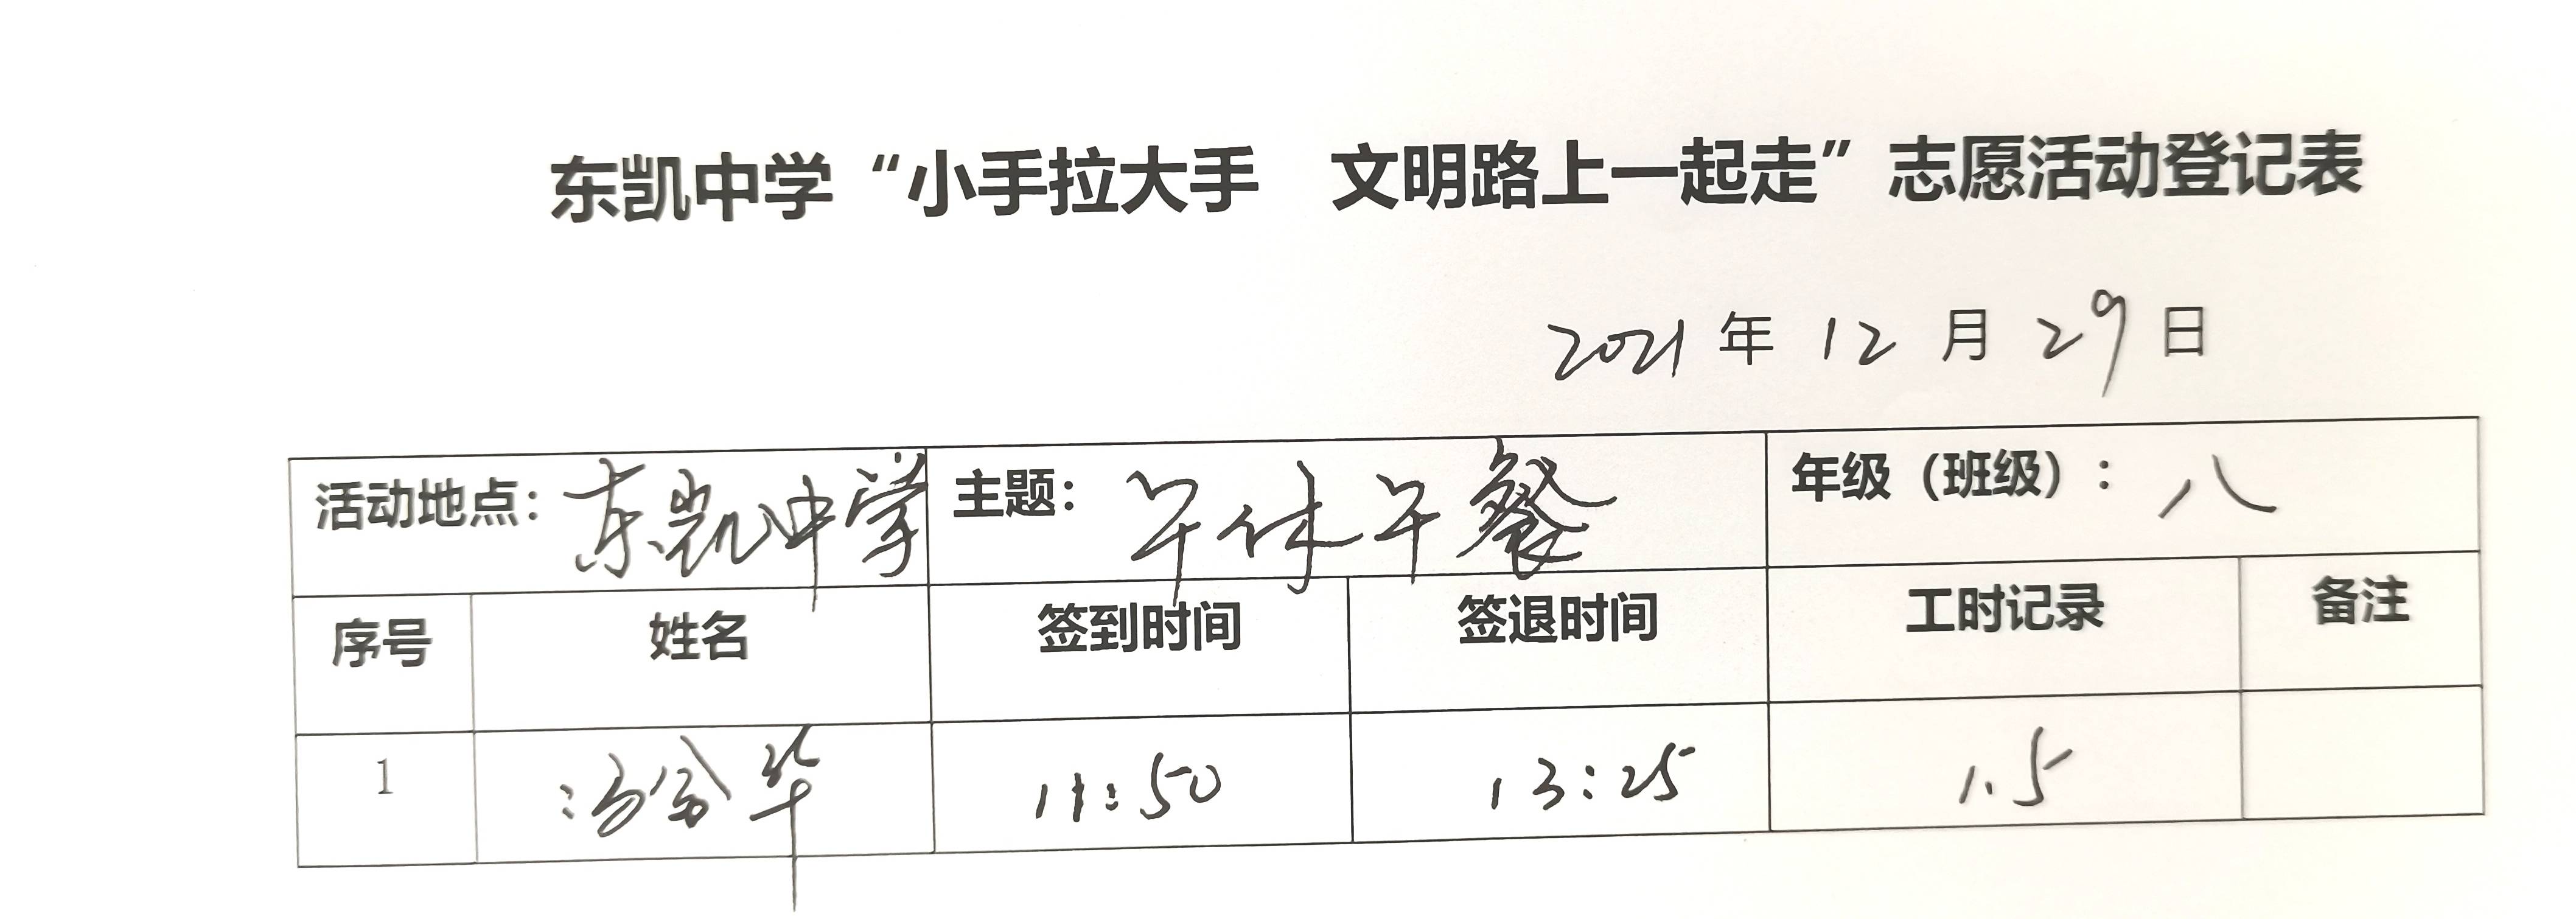 东凯中学“小手拉大手 文明路上一起走”志愿活动登记表
2021年12月29日
活动地点：东凯中学 主题：午休午餐 年级（班级）：八
序号 姓名 签到时间 签退时间 工时记录 备注
1 11:50 13:25 1.5